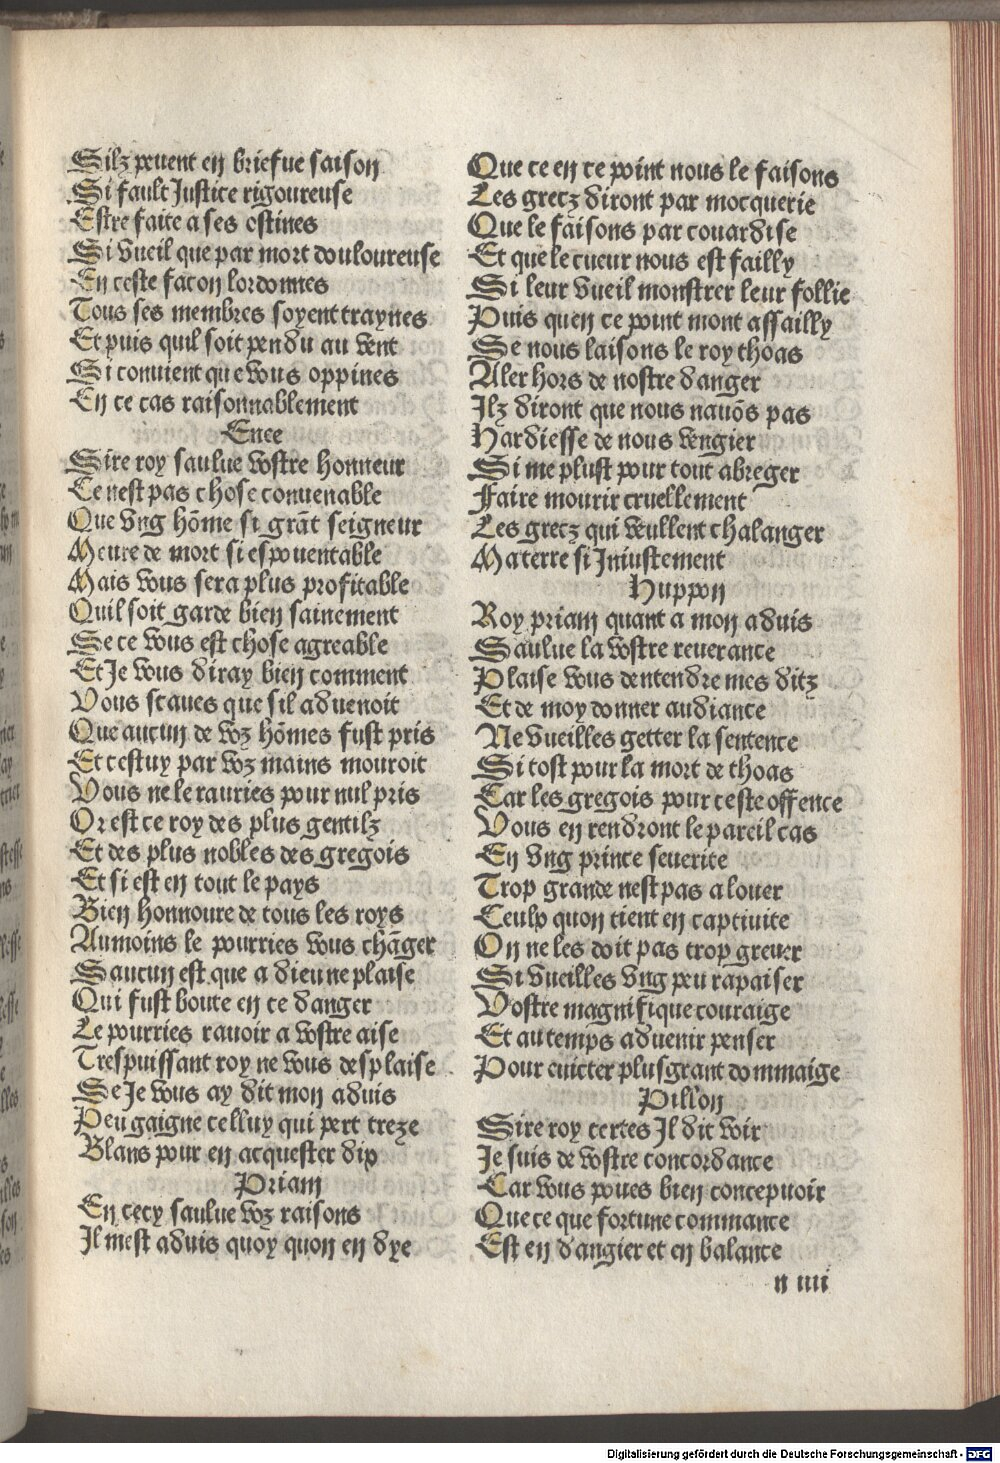 Silz peuent en briefue saison
Si fault Justice rigoureuse
Estre faite a ses ostines
Si vueil que par mort douloureuse
En ceste facon lordonnes
Tous ses membres soyent traynes
Et puis quil soit pendu au vent
Si conuient que vous oppines
En ce cas raisonnablement
Enee
Sire roy saulue vostre honneur
Ce nest pas chose conuenable
Que vng hōme si grāt seigneur
Meure de mort si espouentable
Mais vous sera plus profitable
Quil soit garde bien sainement
Se ce vous est chose agreable
Et Je vous diray bien comment
Vous scaues que sil aduenoit
Que aucun de voz hōmes fust pris
Et cestuy par voz mains mouroit
Vous ne le rauries pour nul pris
Or est ce roy des plus gentilz
Et des plus nobles des gregois
Et si est en tout le pays
Bien honnoure de tous les roys
Aumoins le pourries vous chāger
Saucun est que a dieu ne plaise
Qui fust boute en ce danger
Le pourries rauoir a vostre aise
Trespuissant roy ne vous desplaise
Se Je vous ay dit mon aduis
Peu gaigne celluy qui pert treze
Blans pour en acquester dix
Priam
En cecy saulue voz raisons
Il mest aduis quoy quon en dye
Que ce en ce point nous le faisons
Les grecz diront par mocquerie
Que le faisons par couardise
Et que le cueur nous est failly
Si leur vueil monstrer leur follie
Puis quen ce point mont assailly
Se nous laisons le roy thoas
Aler hors de nostre danger
Ilz diront que nous nauōs pas
Hardiesse de nous vengier
Si me plust pour tout abreger
Faire mourir cruellement
Les grecz qui veullent chalanger
Ma terre si Iniustement
Huppon
Roy priam quant a mon aduis
Saulue la vostre reuerance
Plaise vous dentendre mes ditz
Et de moy donner audiance
Ne vueilles getter la sentence
Si tost pour la mort de thoas
Car les gregois pour ceste offence
Vous en rendront le pareil cas
En vng prince seuerite
Trop grande nest pas a louer
Ceulx quon tient en captiuite
On ne les doit pas trop greuer
Si vueilles vng peu rapaiser
Vostre magnifique couraige
Et au temps aduenir penser
Pour euicter plus grant dommaige
Pillon
Sire roy certes Il dit voir
Je suis de vostre concordance
Car vous poues bien concepuoir
Que ce que fortune commance
Est en dangier et en balance
n iiii
Digitalisierung gefördert durch die Deutsche Forschungsgemeinschaft - DFG